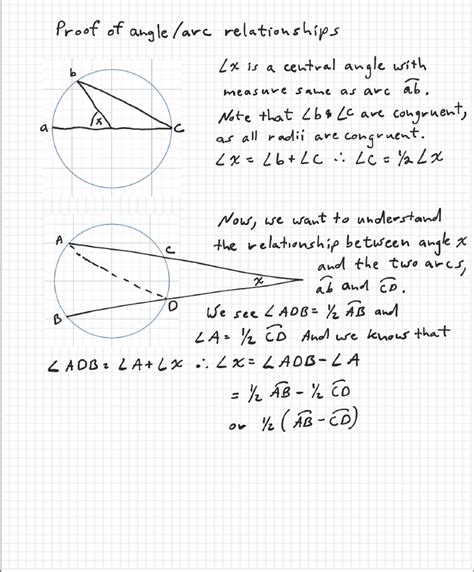 Proof of angle/arc relationships
b
∠x is a central angle with
measure same as arc a͡b.
x
Note that ∠b & ∠c are congruent,
a
c
as all radii are congruent.
∠x = ∠b + ∠c ∴ ∠c = ½ ∠x
Now, we want to understand
A
the relationship between angle x
C
and the two arcs,
x
a͡b and C͡D.
D
B
We see ∠ADB = ½ A͡B and
∠A = ½ C͡D And we know that
∠ADB = ∠A + ∠x ∴ ∠x = ∠ADB - ∠A
= ½ A͡B - ½ C͡D
or ½ (A͡B - C͡D)